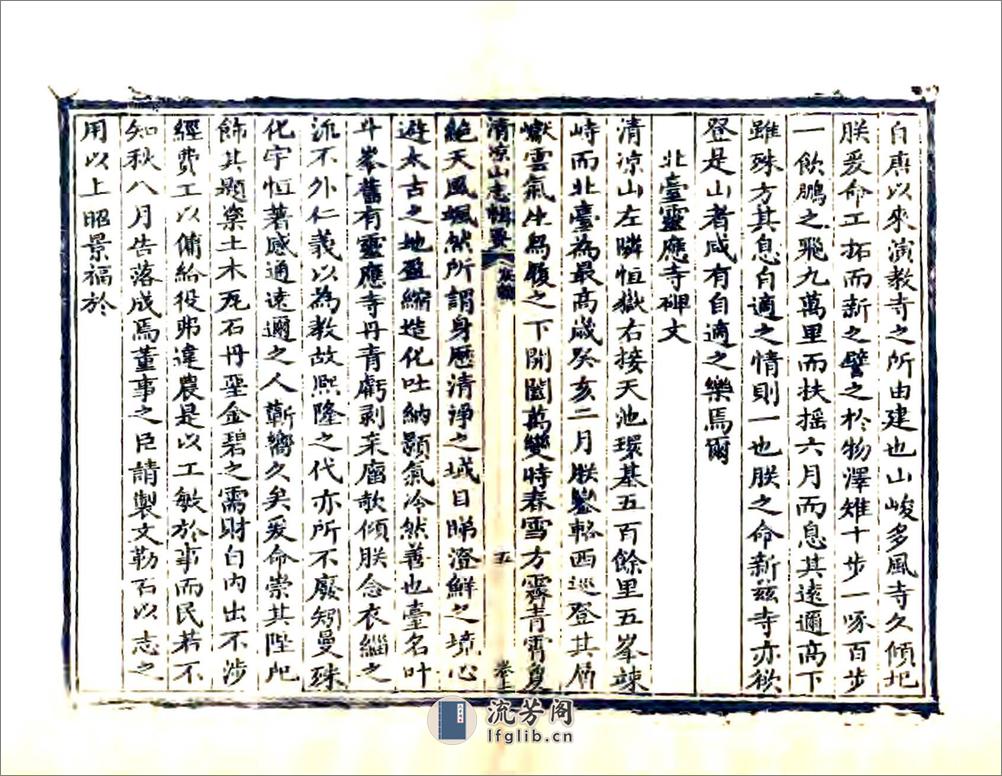 自唐以來演教寺之所由建也山峻多風寺久傾圯
朕爰命工拓而新之譬之於物澤雉十步一啄百步
一飲鵬之飛九萬里而扶搖六月而息其遠邇高下
雖殊方其息自適之情則一也朕之命新茲寺亦欲
登是山者咸有自適之樂焉爾
北臺靈應寺碑文
清涼山左隣恒嶽右接天池環基五百餘里五峯竦
峙而北臺為最高歲癸亥二月朕鑾輅西巡登其
巘雲氣生焉履之下開闔萬變時春雪方霽青霄夐
清涼山志輯要 卷上 五
絕天風颯然所謂身歷清淨之域目睇澄鮮之境心
遊太古之地盈縮造化吐納顥氣泠然善也臺名叶
斗峯舊有靈應寺丹青虧剥桼廇欹傾朕念衣緇之
流不外仁義以為教故熙隆之代亦所不廢矧曼殊
化宇恒著感通遠邇之人蘄嚮久矣爰命崇其陛戺
飾其題楶土木瓦石丹堊金碧之需財自內出不涉
經費工以傭給役弗違農是以工敏於事而民若不
知秋八月告落成焉董事之臣請製文勒石以志之
用以上昭景福於
流芳閣
lfglib.cn